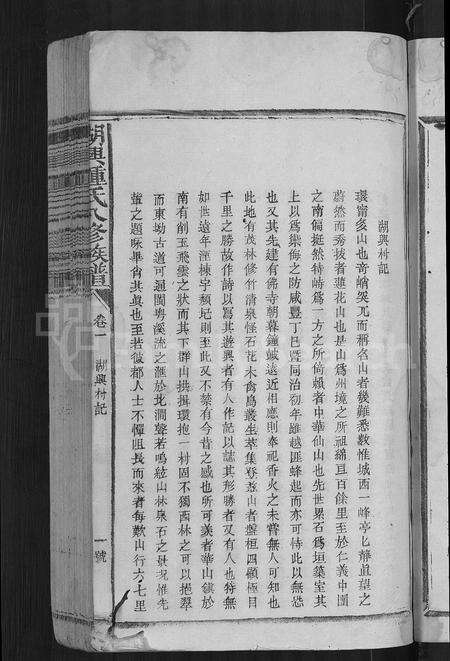 湖興村記
環甯多山也奇峭突兀而稱名山者幾難悉數惟城西一峰亭亡聳直望之
蔚然而秀拔者蓮花山也是山爲州境之所祖綿亘百餘里至於仁義中團
之南偏挺然特峙爲一方之所倚賴者中華仙山也先世累石爲垣築室其
上以爲禦侮之防咸豐丁巳暨同治初年雖越匪蜂起而亦可恃此以無恐
也又其先建有佛寺朝暮鐘鳴遠近相應則奉祀香火之未嘗無人可知也
此地有茂林修竹清泉怪石花木禽鳥叢生萃集登茲山者盤桓四顧極目
千里之勝故作詩以寫其遊興者有人作記以誌其形勝者又有人也符無
如世遠年湮棟宇頹圮則至此又不禁有今昔之感也所可羨者華山鎮於
南有削玉飛雲之狀而其下群山拱揖環抱一村固不獨西林之可以挹翠
而東坳古道可通閩粵溪流之滙於北澗聲若鳴絃山林泉石之景況惟先
堂之題咏畢肖其眞也至若彼都人士不憚阻長而來者每歎山行六七里
湖興鍾氏八修族譜
卷一
湖興村記
一號